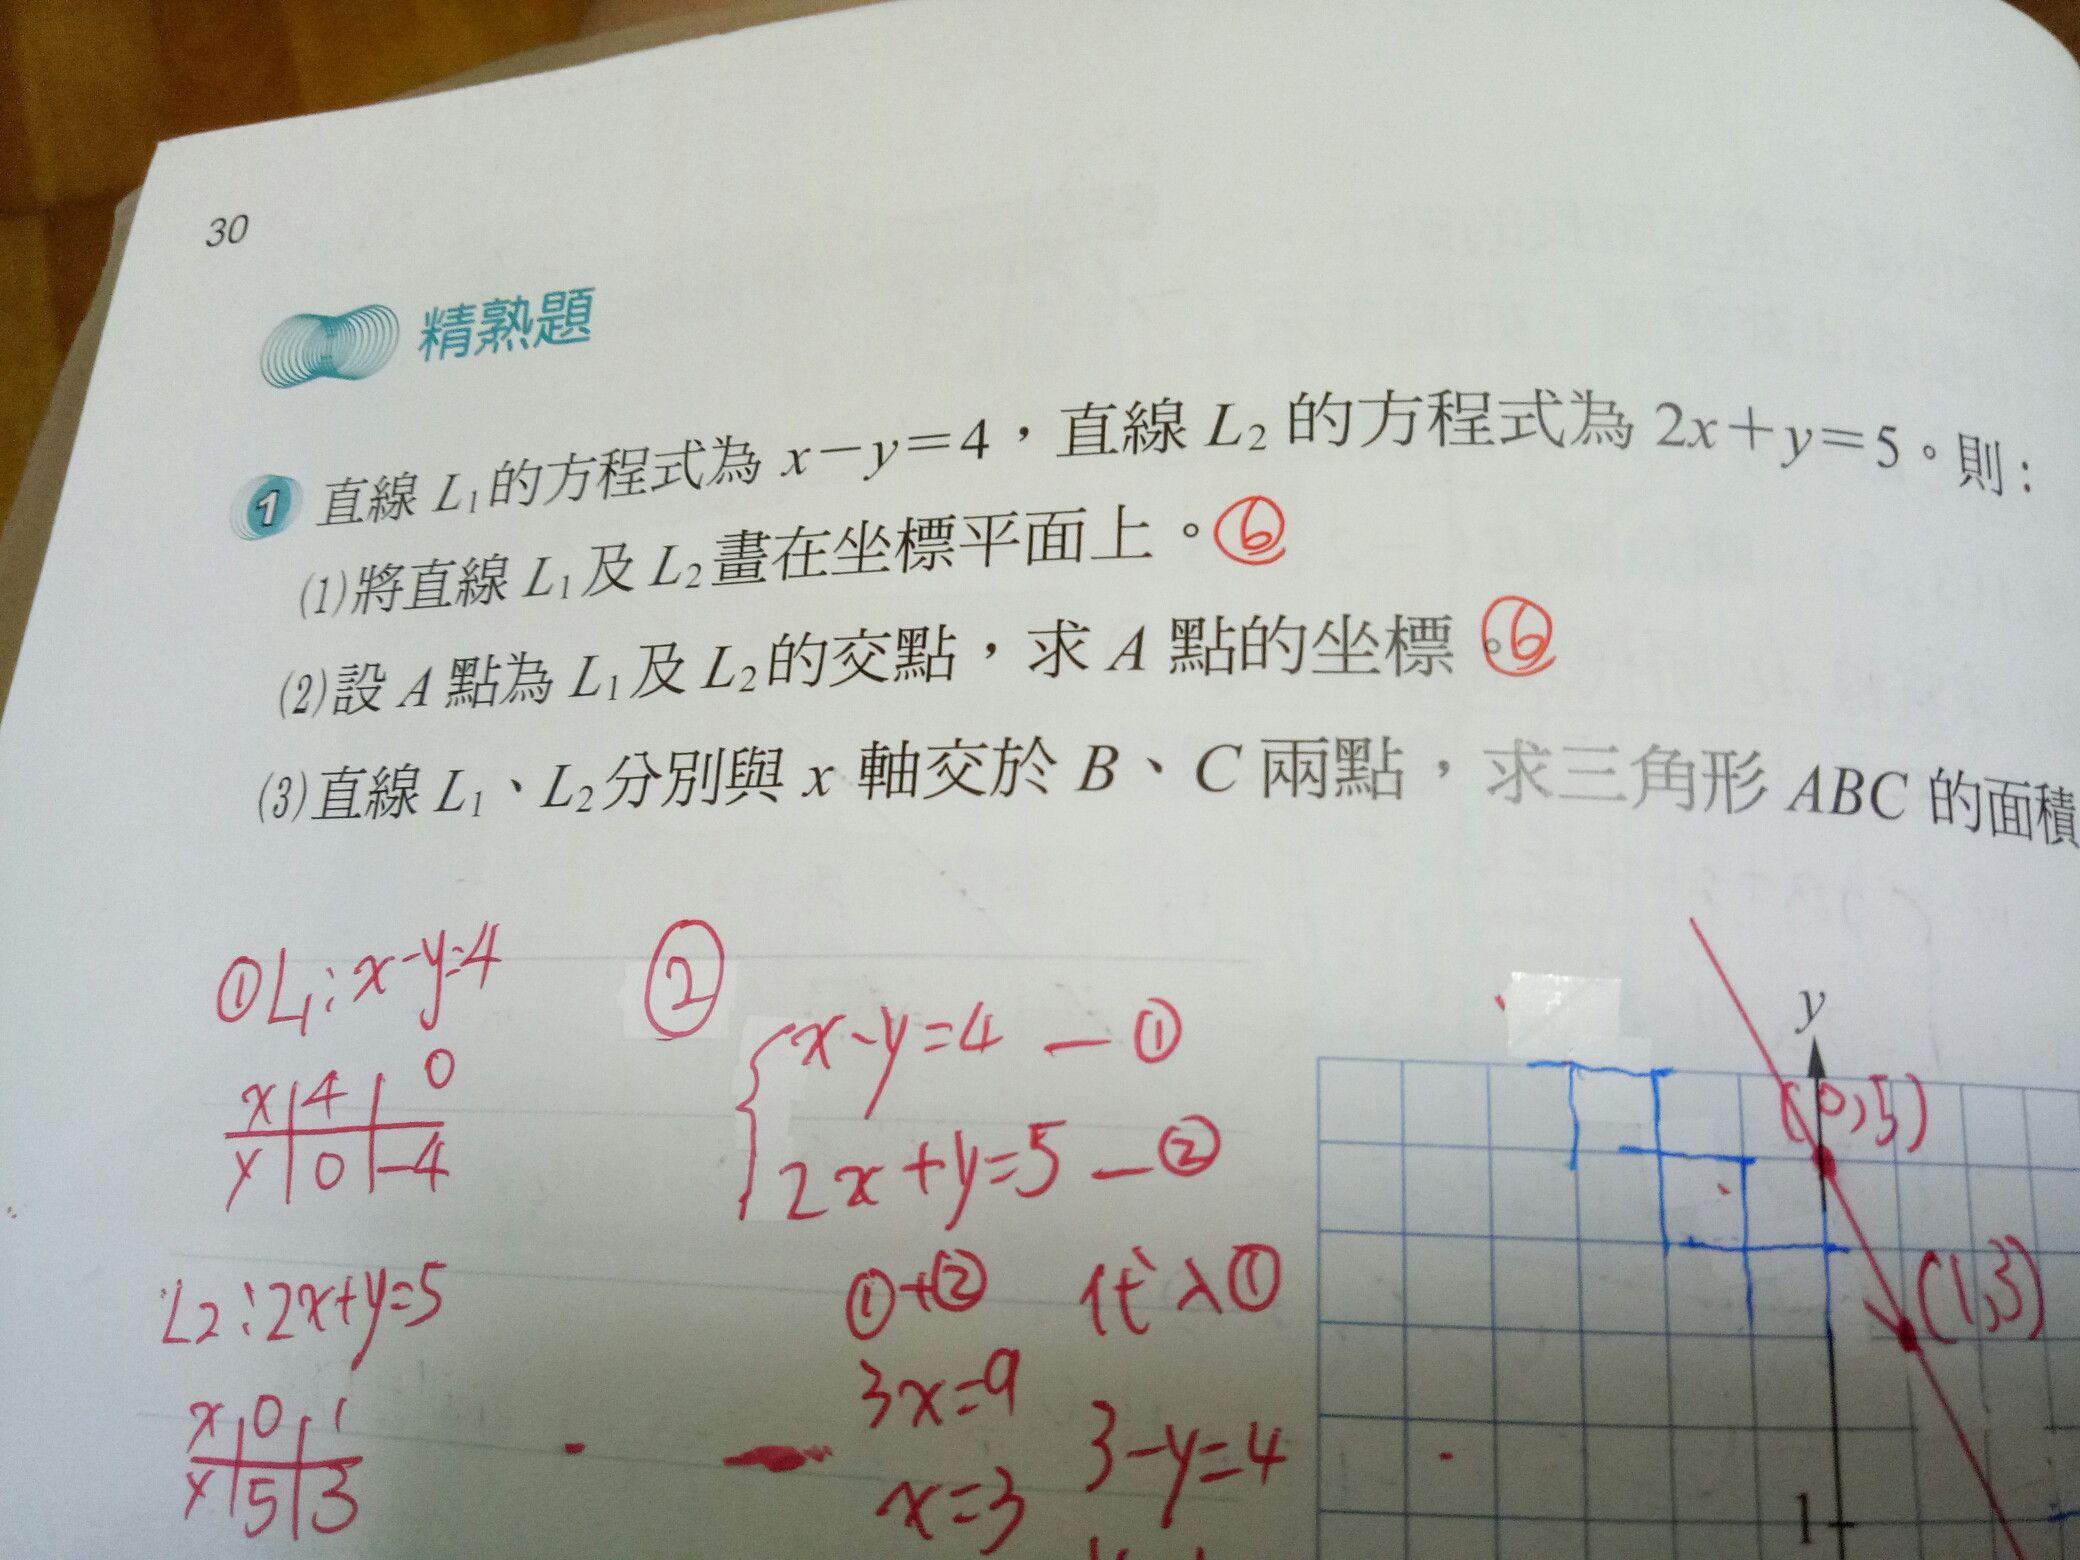 30
精熟題
1 直線 L₁的方程式為 x－y＝4，直線 L₂ 的方程式為 2x＋y＝5。則：
(1)將直線 L₁及 L₂畫在坐標平面上。⑥
(2)設 A 點為 L₁及 L₂的交點，求 A 點的坐標。⑥
(3)直線 L₁、L₂分別與 x 軸交於 B、C 兩點，求三角形 ABC 的面積
①L₁：x-y=4
x 4 0
y 0 -4
L₂：2x+y=5
x 0 1
y 5 3
②
x-y=4 —①
2x+y=5 —②
①+②
3x=9
x=3
代入①
3-y=4
y
(0,5)
(1,3)
1